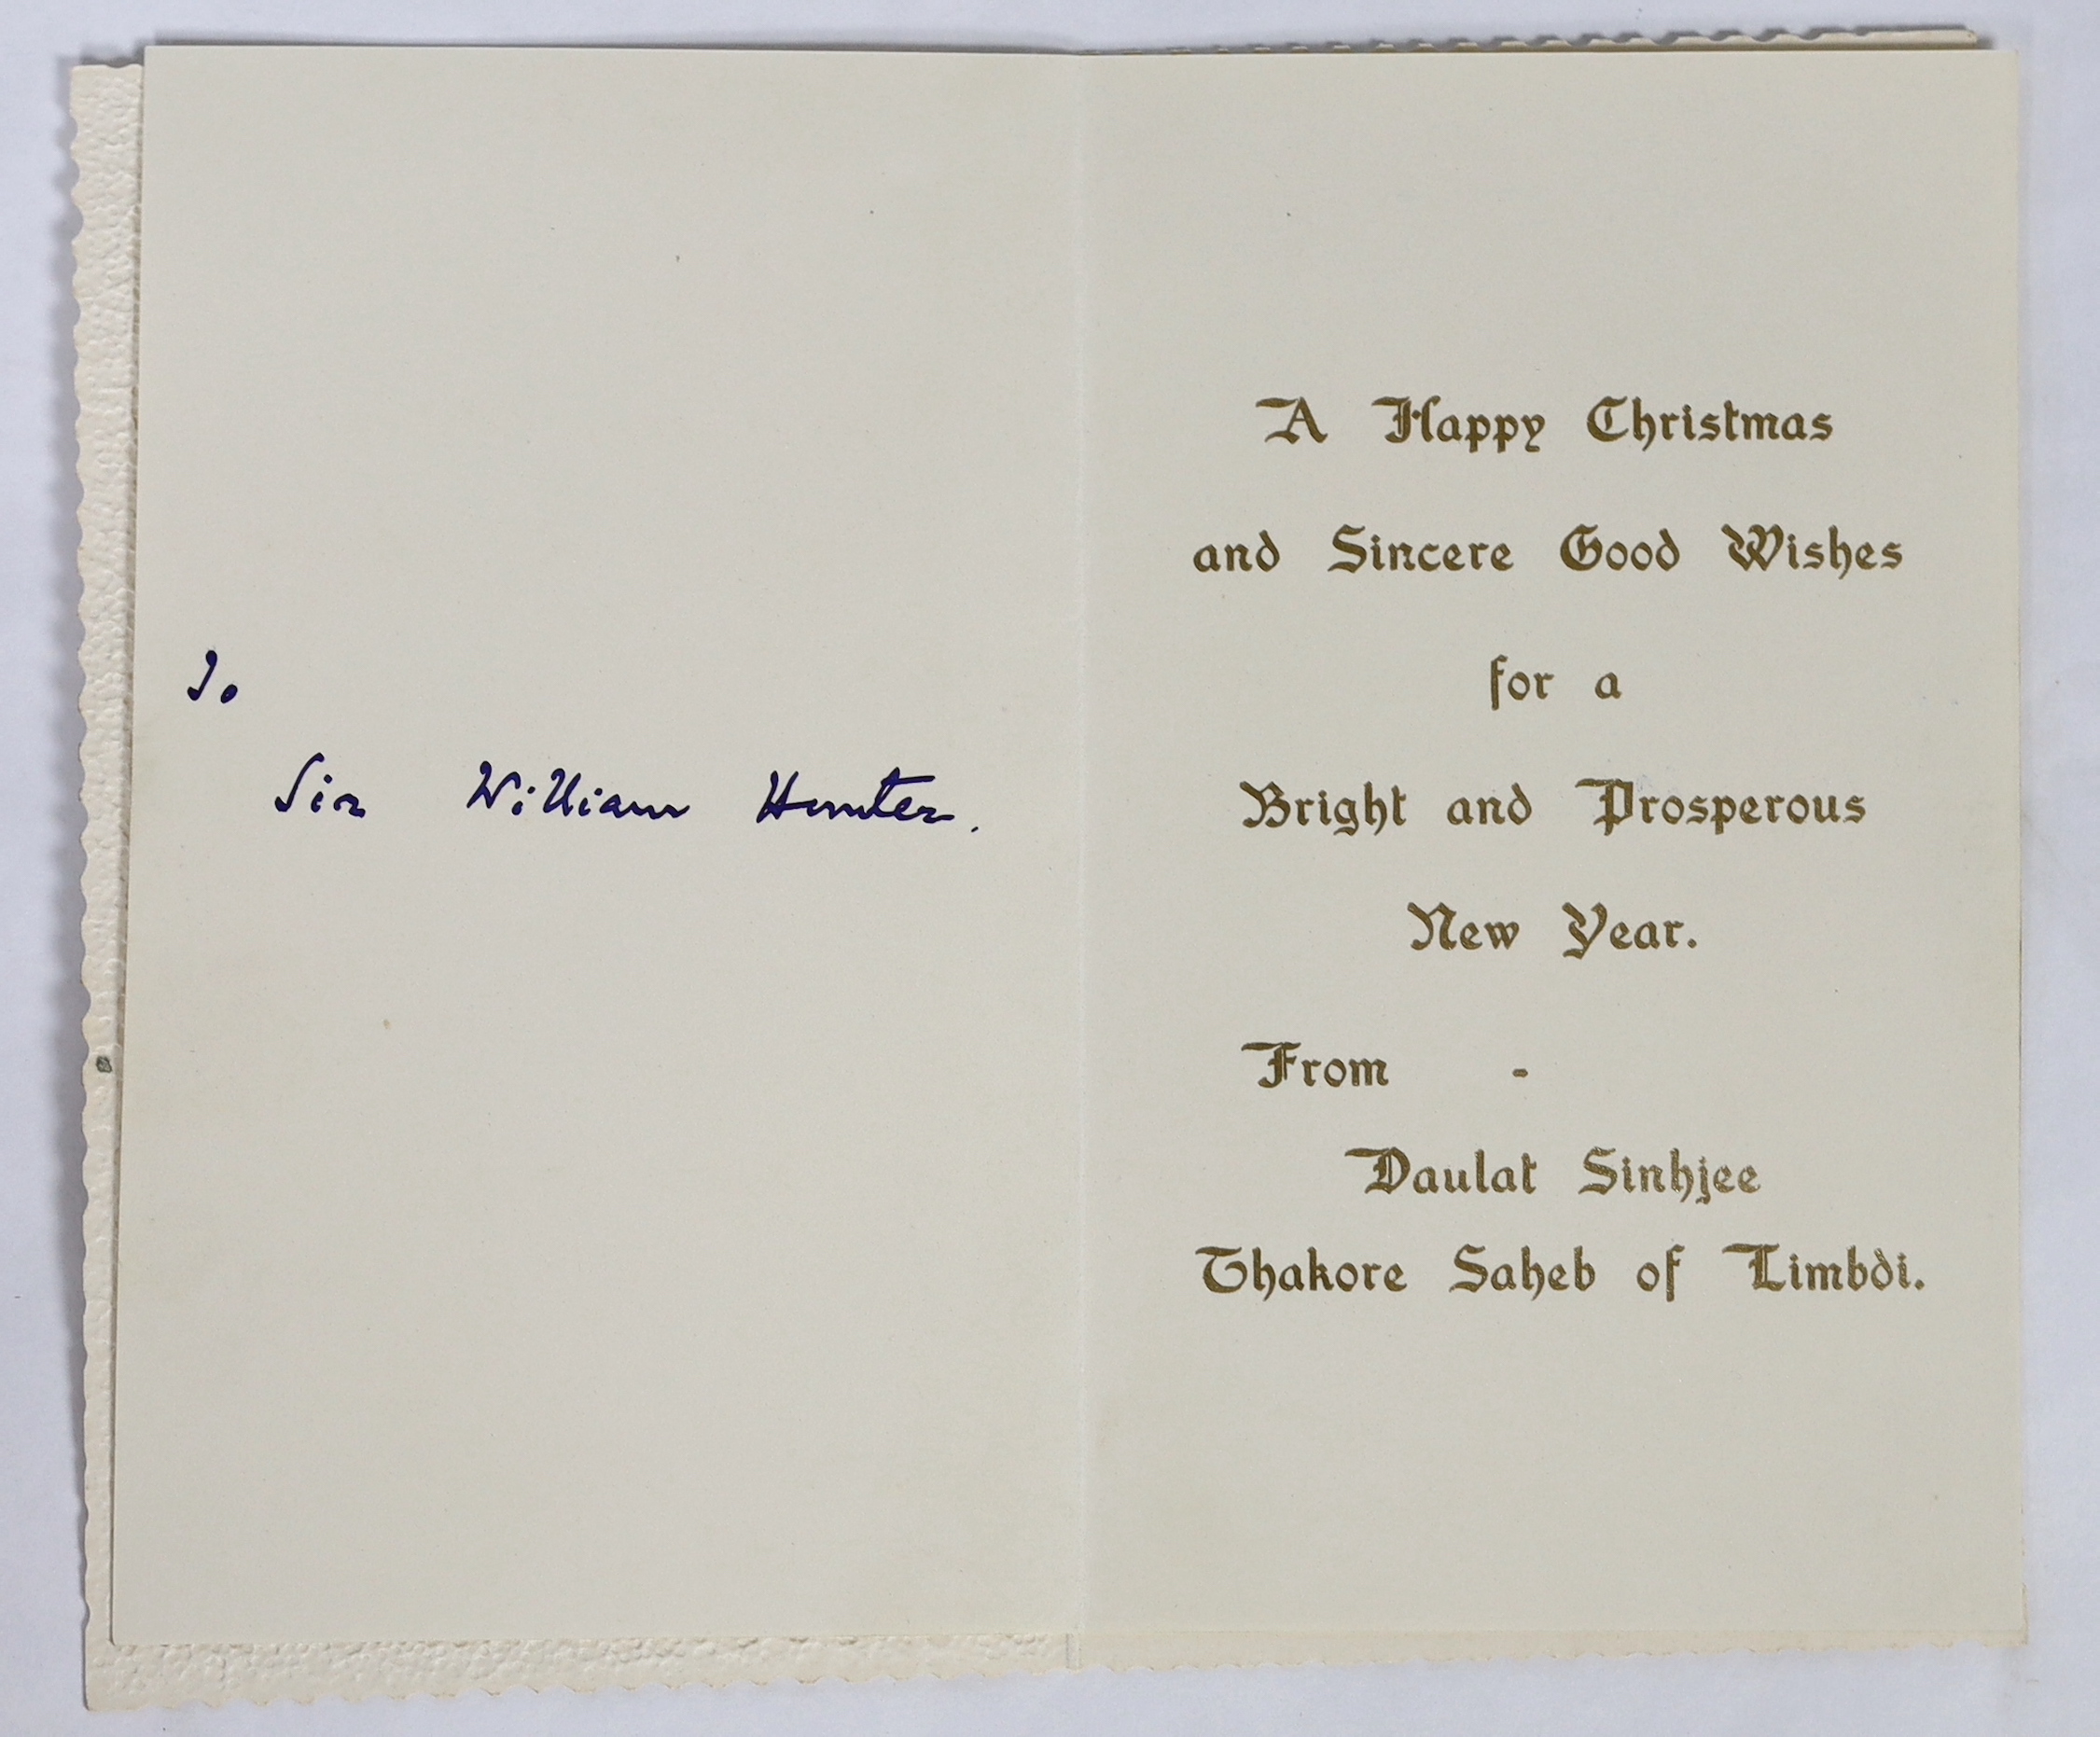 To
Sir William Hunter.
A Happy Christmas
and Sincere Good Wishes
for a
Bright and Prosperous
New Year.
From -
Daulat Sinhjee
Thakore Saheb of Limbdi.